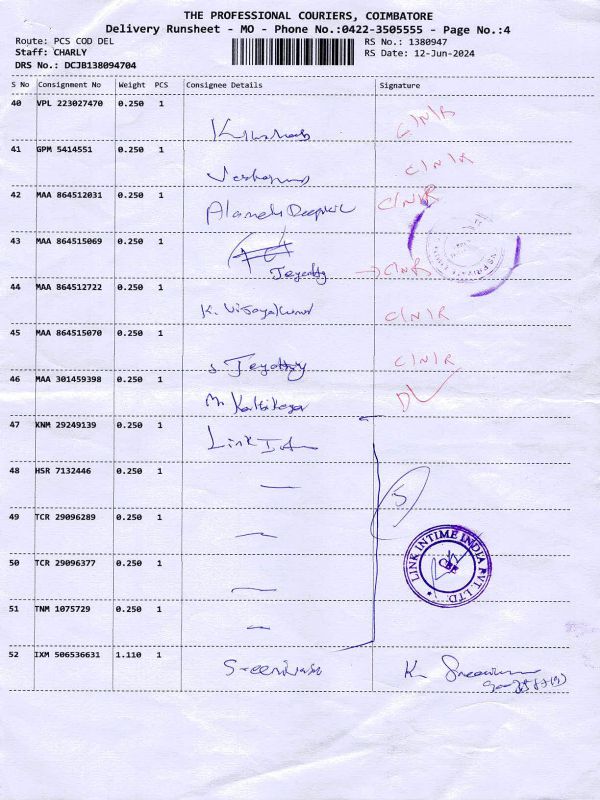 THE PROFESSIONAL COURIERS, COIMBATORE
Delivery Runsheet - MO - Phone No.:0422-3505555 - Page No.:4
Route: PCS COD DEL
RS No.: 1380947
Staff: CHARLY
RS Date: 12-Jun-2024
DRS No.: DCJB138094704
S No Consignment No Weight PCS Consignee Details Signature
40 VPL 223027470 0.250 1
C/N/R
41 GPM 5414551 0.250 1
C/N/R
42 MAA 864512031 0.250 1
C/N/R
Alamelu
43 MAA 864515069 0.250 1
C/N/R
44 MAA 864512722 0.250 1
K. Vijayakumar C/N/R
45 MAA 864515070 0.250 1
C/N/R
46 MAA 301459398 0.250 1
DL
47 KNM 29249139 0.250 1
Link
48 HSR 7132446 0.250 1
5
49 TCR 29096289 0.250 1
50 TCR 29096377 0.250 1
LINK INTIME INDIA PVT. LTD.
51 TNM 1075729 0.250 1
52 IXM 506536631 1.110 1
Sreenivasa